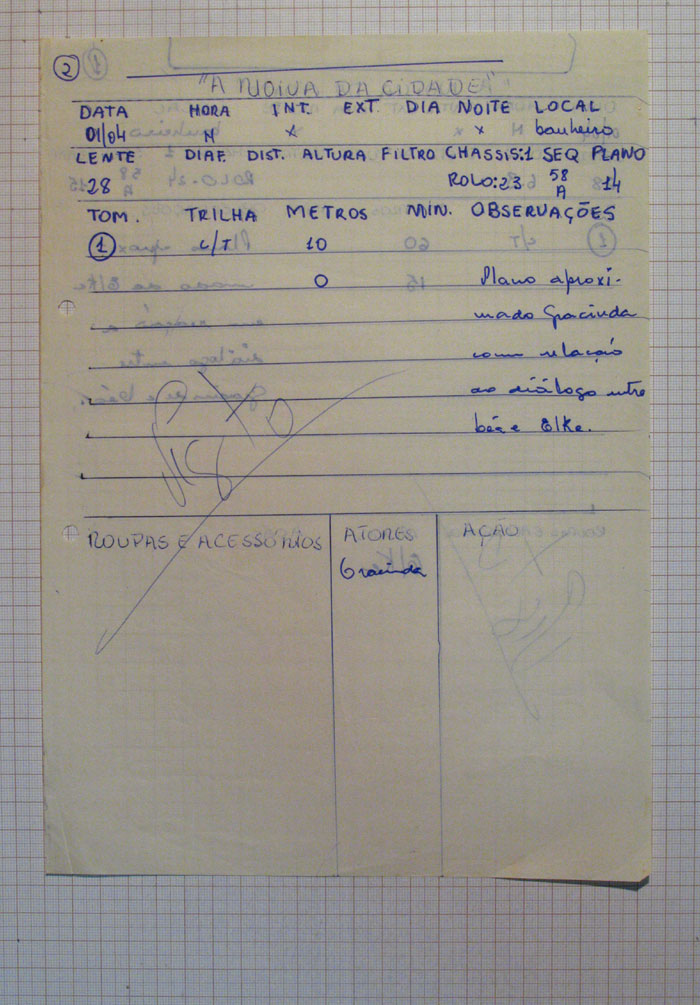 2
"A NOIVA DA CIDADE"
DATA HORA INT. EXT. DIA NOITE LOCAL
01/04 N x x banheiro
LENTE DIAF. DIST. ALTURA FILTRO CHASSIS:1 SEQ PLANO
28 ROLO:23 58 A 14
TOM. TRILHA METROS MIN. OBSERVAÇÕES
1 C/T 10
0 Plano aproxi-
mado Gracinda
com relação
ao diálogo entre
e Elke.
ROUPAS E ACESSÓRIOS ATORES AÇÃO
Gracinda